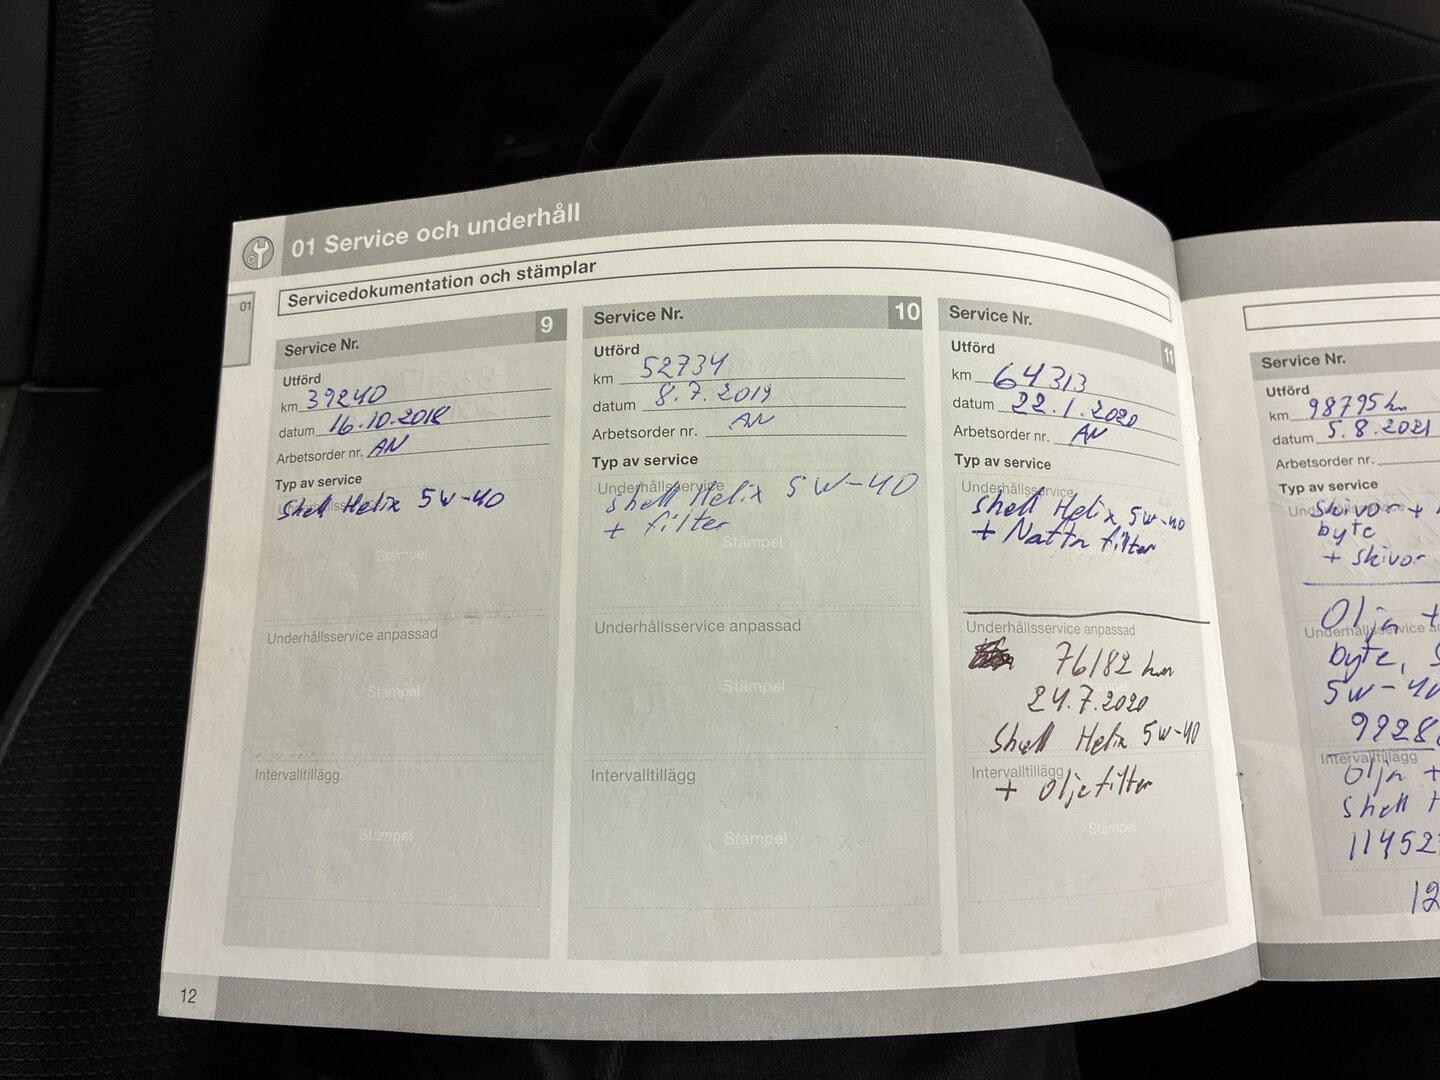 01 Service och underhåll
Servicedokumentation och stämplar
01
Service Nr. 9
Utförd
km 39240
datum 16.10.2018
Arbetsorder nr. AN
Typ av service
Underhållsservice
Shell Helix 5W-40
Stämpel
Underhållsservice anpassad
Stämpel
Intervalltillägg
Stämpel
Service Nr. 10
Utförd
km 52734
datum 8.7.2019
Arbetsorder nr. AN
Typ av service
Underhållsservice
Shell Helix 5W-40
+ filter
Stämpel
Underhållsservice anpassad
Stämpel
Intervalltillägg
Stämpel
Service Nr. 11
Utförd
km 64313
datum 22.1.2020
Arbetsorder nr. AN
Typ av service
Underhållsservice
Shell Helix 5W-40
+ filter
Underhållsservice anpassad
76182 km
24.7.2020
Shell Helix 5W-40
Intervalltillägg
+ Oljefilter
Stämpel
12
Service Nr.
Utförd
km 98795 km
datum 5.8.2021
Arbetsorder nr.
Typ av service
Skivor +
byte
+ skivor
Olja +
Underhållsservice
byte,
5W-40
Intervalltillägg
Olja +
Shell